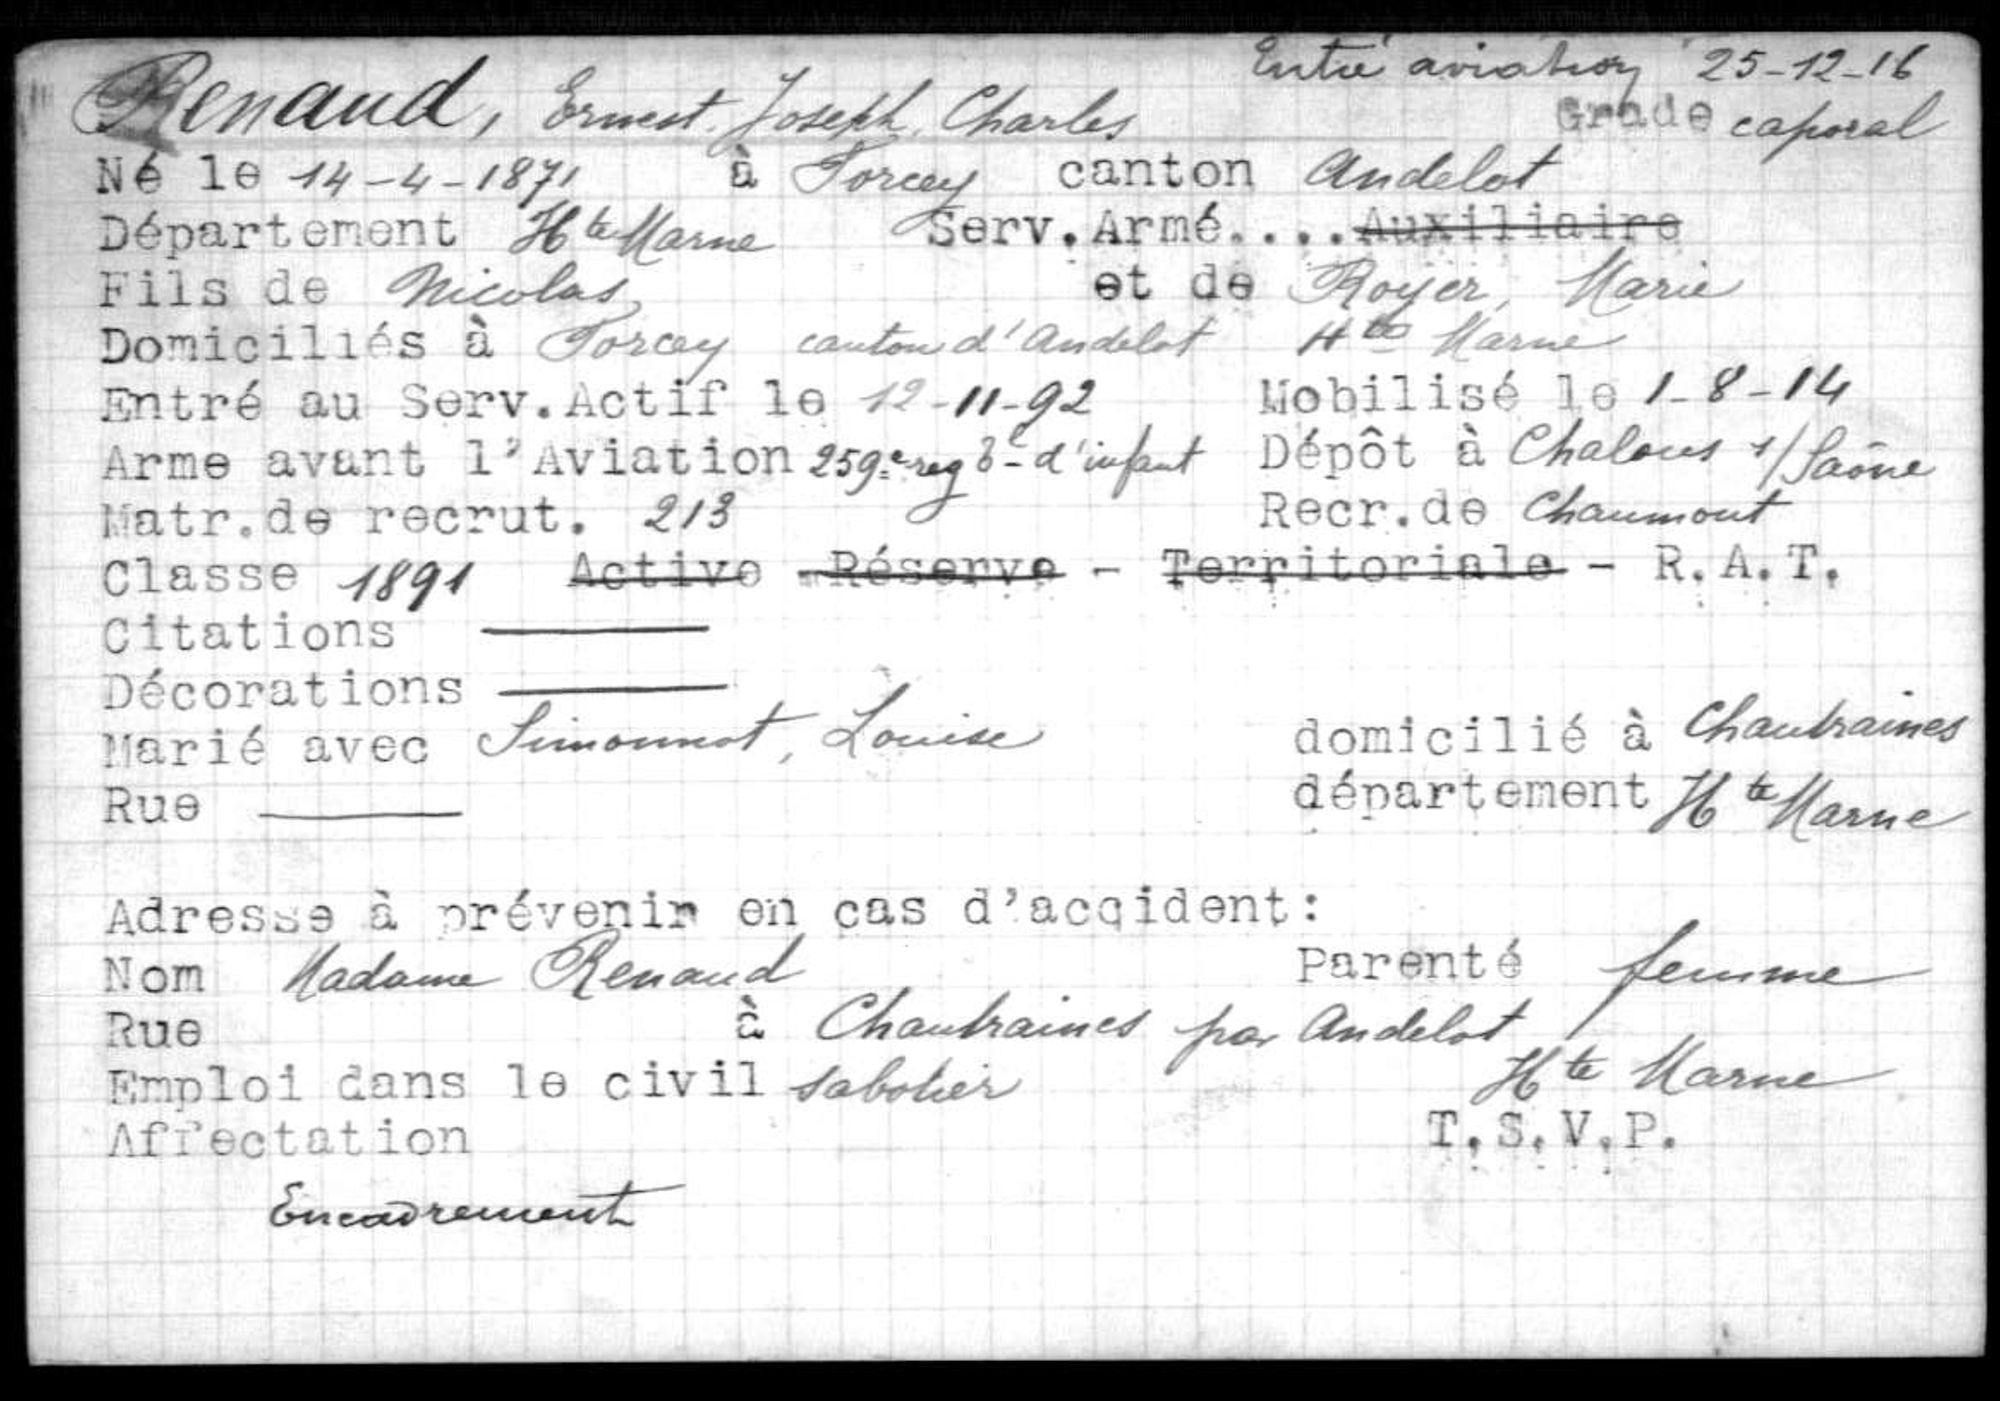 Entré aviation 25-12-16
Renaud, Ernest Joseph Charles Grade caporal
Né le 14-4-1871 à Forcey canton Andelot
Département Hte Marne Serv.Armé....Auxiliaire
Fils de Nicolas et de Royer, Marie
Domiciliés à Forcey canton d'Andelot Hte Marne
Entré au Serv.Actif le 12-11-92 Mobilisé le 1-8-14
Arme avant l'Aviation 259e reg d'infant Dépôt à Chalons s/Saône
Matr.de recrut. 213 Recr.de Chaumont
Classe 1891 Active - Réserve - Territoriale - R.A.T.
Citations
Décorations
Marié avec Simonnot, Louise domicilié à Chantraines
Rue département Hte Marne
Adresse à prévenir en cas d'accident:
Nom Madame Renaud Parenté femme
Rue à Chantraines par Andelot
Hte Marne
Emploi dans le civil sabotier
Affectation T.S.V.P.
Encadrement